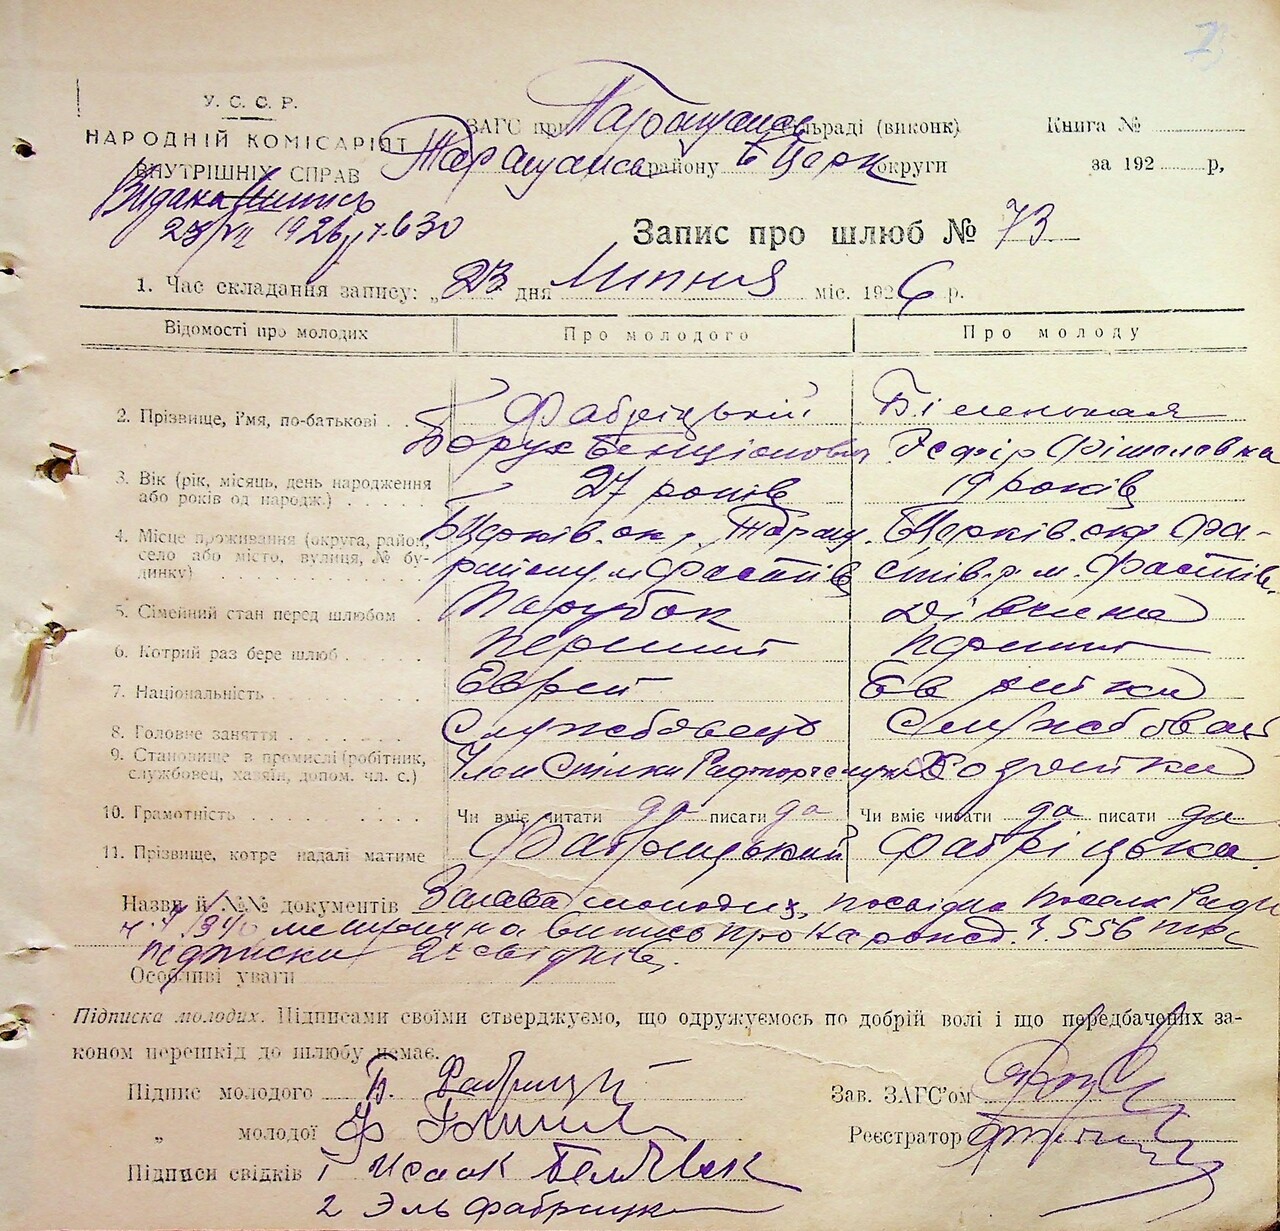 У. С. С. Р.
НАРОДНІЙ КОМІСАРІЯТ
ВНУТРІШНІХ СПРАВ
ЗАГС при сельраді (виконк)
району Б Церк округи
Книга №
за 192 р,
Видана Випись
1926 р. ч. 630
Запис про шлюб № 73
1. Час складання запису: „23 дня Липня міс. 1926 р.
Відомості про молодих Про молодого Про молоду
2. Прізвище, і'мя, по-батькові Фабріцький Біленькая
Борух Бенціонович Эсфір Фішелевна
3. Вік (рік, місяць, день народження
або років од народж.) 27 років 19 років
4. Місце проживання (округа, район,
село або місто, вулиця, № бу-
динку)
Бцерків. окр. Таращ. Бцерків. окр Фа-
району м Фастів стів. р м. Фастів
5. Сімейний стан перед шлюбом Парубок Дівчина
6. Котрий раз бере шлюб перший перший
7. Національність Еврей Еврейка
8. Головне заняття Службовець Службовець
9. Становище в промислі (робітник,
службовец, хазяїн, допом. чл. с.)
Член Спілки
10. Грамотність Чи вміє читати да писати да Чи вміє читати да писати да
11. Прізвище, котре надалі матиме Фабріцький Фабріцька
Назви й №№ документів Заява молодих, посвідка
метрична випись про народ. ч. 556 та
підписки 2х свідків.
Особливі уваги
Підписка молодих. Підписами своїми стверджуємо, що одружуємось по добрій волі і що передбачених за-
коном перешкід до шлюбу немає.
Підпис молодого Б. Фабрицкий
„ молодої
Зав. ЗАГС'ом
Реєстратор
Підписи свідків 1 Исаак
2 Эль Фабрицк